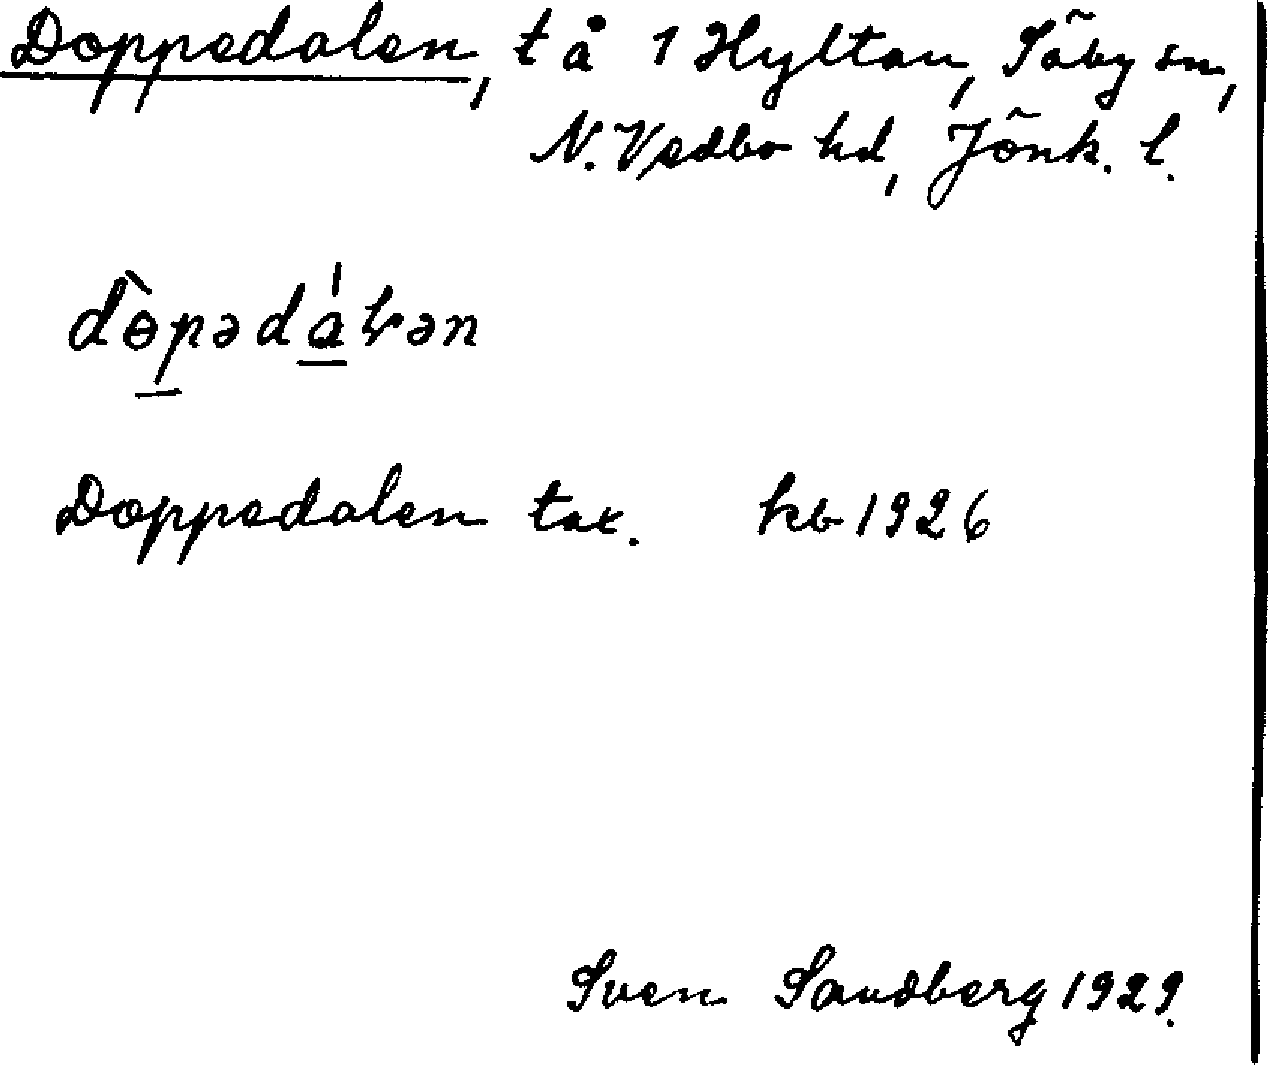 Doppedalen, t å 1 Hyltan, Säby sn,
N. Vedbo hd, Jönk. l.
dɵ̀pədáɽən
Doppedalen tax. kb 1926
Sven Sandberg 1929.